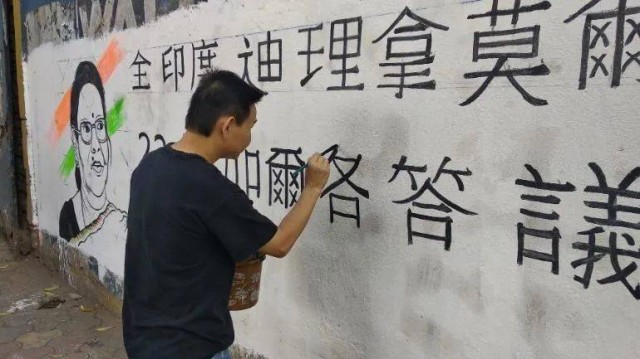 全印度迪理拿莫爾
加爾各答議